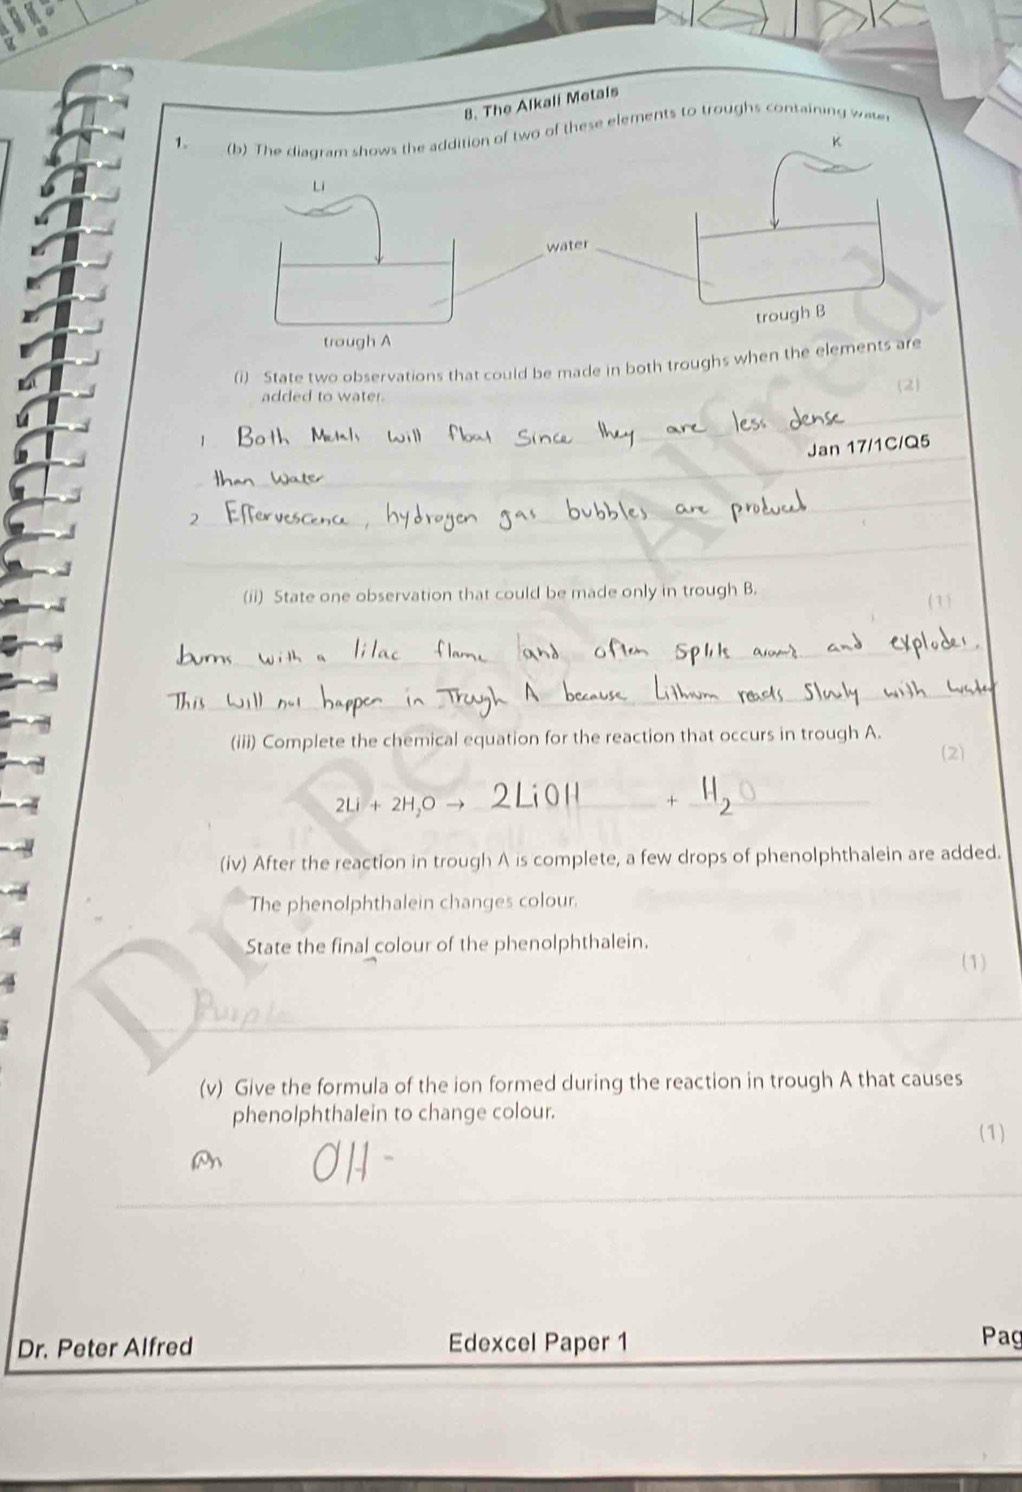 8. The Alkali Metals
1. (b) The diagram shows the addition of two of these elements to troughs containing water
K
Li
water
trough B
trough A
(i) State two observations that could be made in both troughs when the elements are
added to water.
(2)
1 Both Metals will float since they are less dense
Jan 17/1C/Q5
than water
2 Effervescence, hydrogen gas bubbles are produced
(ii) State one observation that could be made only in trough B.
(1)
burns with a lilac flame and often splits around and explodes.
This will not happen in Trough A because Lithium reacts slowly with water
(iii) Complete the chemical equation for the reaction that occurs in trough A.
(2)
2Li + 2H₂O → 2LiOH + H₂
(iv) After the reaction in trough A is complete, a few drops of phenolphthalein are added.
The phenolphthalein changes colour.
State the final colour of the phenolphthalein.
(1)
Purple
(v) Give the formula of the ion formed during the reaction in trough A that causes
phenolphthalein to change colour.
(1)
OH -
Dr. Peter Alfred
Edexcel Paper 1
Pag
Dr. Peter Alfred